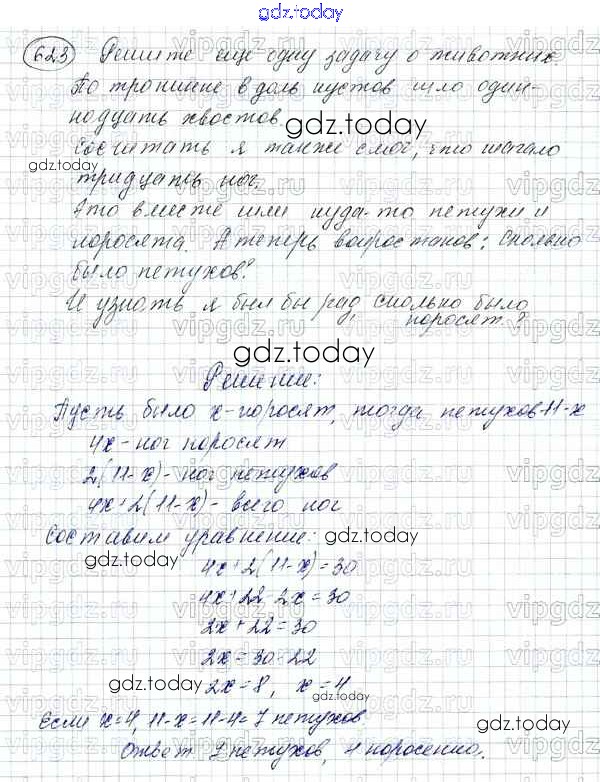 gdz.today
623 Решите еще одну задачу о животных
По тропинке вдоль кустов шло один-
надцать хвостов
gdz.today
Сосчитать я также смог, что шагало
тридцать ног.
gdz.today
Это вместе шли куда-то петухи и
поросята. А теперь вопрос таков: сколько
было петухов?
И узнать я был бы рад, сколько было
поросят?
gdz.today
Решение:
Пусть было х-поросят, тогда петухов-11-х
4х - ног поросят
2(11-х) - ног петухов
4х+2(11-х) - всего ног
Составим уравнение:
gdz.today gdz.today
4х+2(11-х)=30
4х+22-2х=30
2х+22=30
2х=30-22
gdz.today gdz.today
2х=8, х=4
Если х=4, 11-х=11-4=7 петухов
gdz.today
Ответ 7 петухов, 4 поросенка.